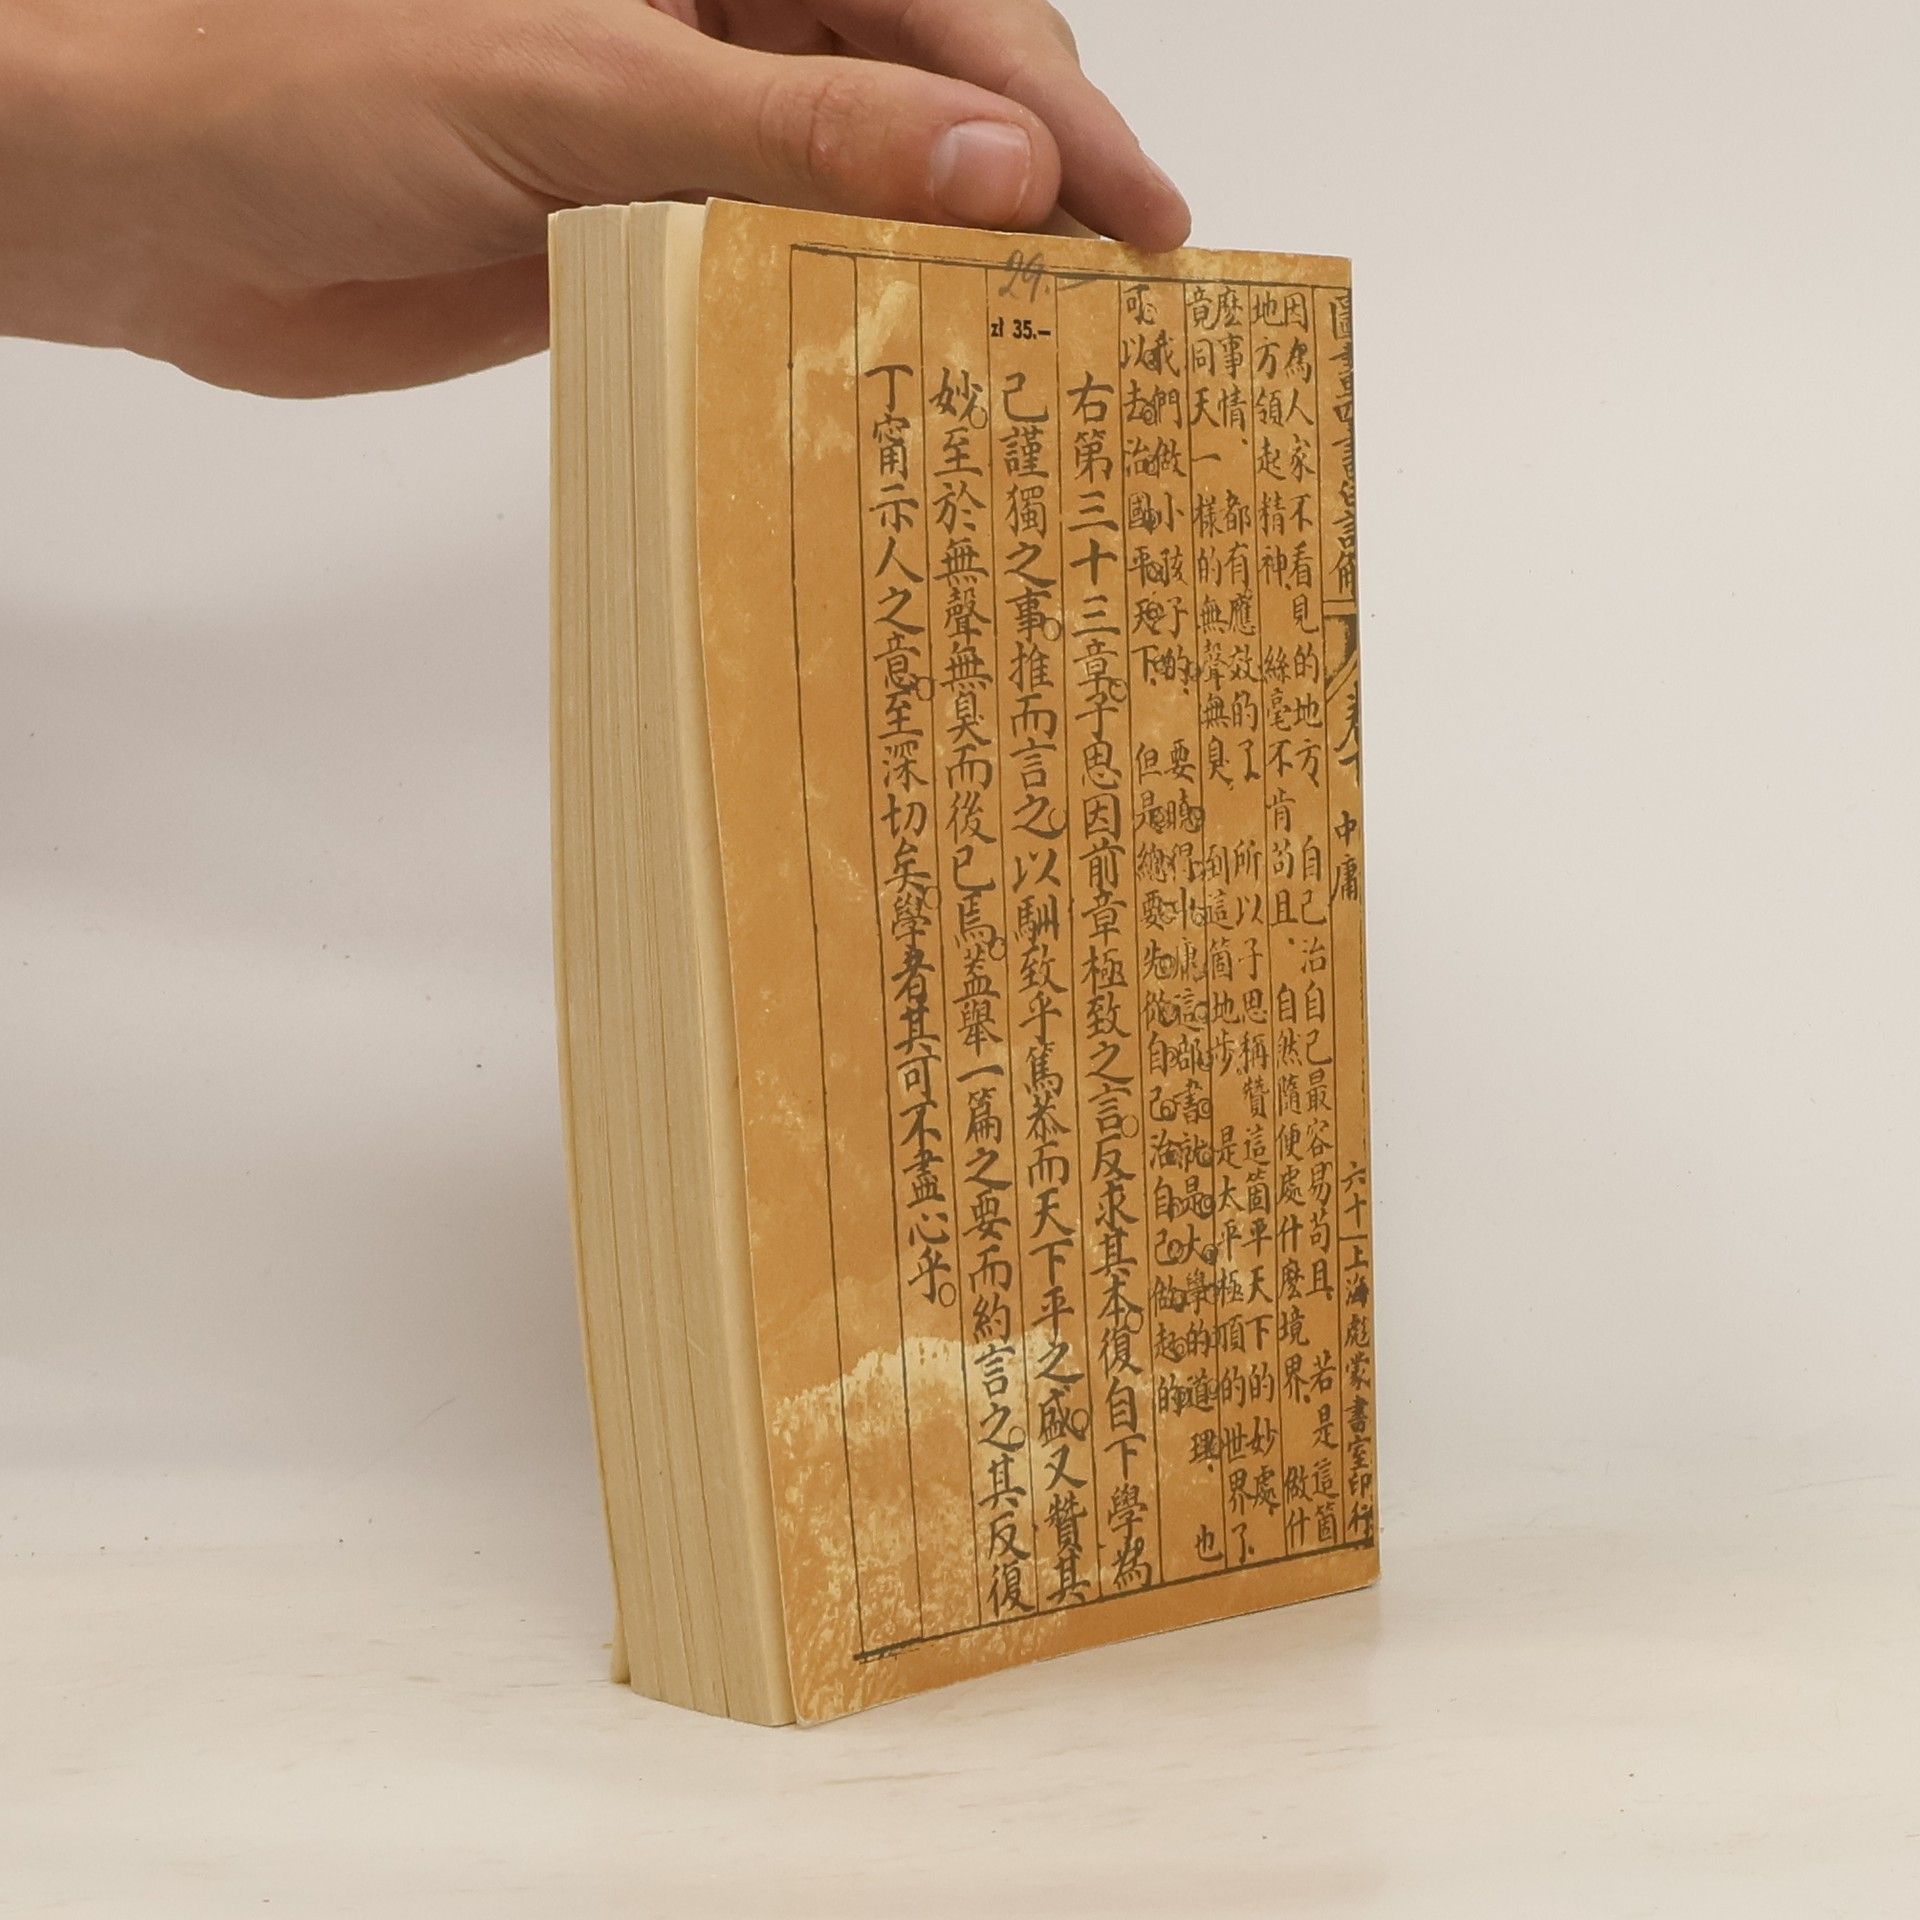 圖畫四書白話解
卷十 中庸 六十一 上海彪蒙書室印行
因為人家不看見的地方、自己治自己最容易苟且、若是這箇
地方領起精神、絲毫不肯苟且、自然隨便處什麼境界、做什
麼事情、都有應效的了、所以子思稱贊這箇平天下的妙處、
竟同天一樣的無聲無臭、到這箇地步、是太平極頂的世界了、
我們做小孩子的、要曉得中庸這部書就是大學的道理、也
可以去治國平天下、但是總要先從自己治自己做起的
右第三十三章○子思因前章極致之言○反求其本○復自下學為
己謹獨之事○推而言之○以馴致乎篤恭而天下平之盛○又贊其
妙○至於無聲無臭而後已焉○蓋舉一篇之要而約言之○其反復
丁甯示人之意○至深切矣○學者其可不盡心乎○
29.
zł 35.—